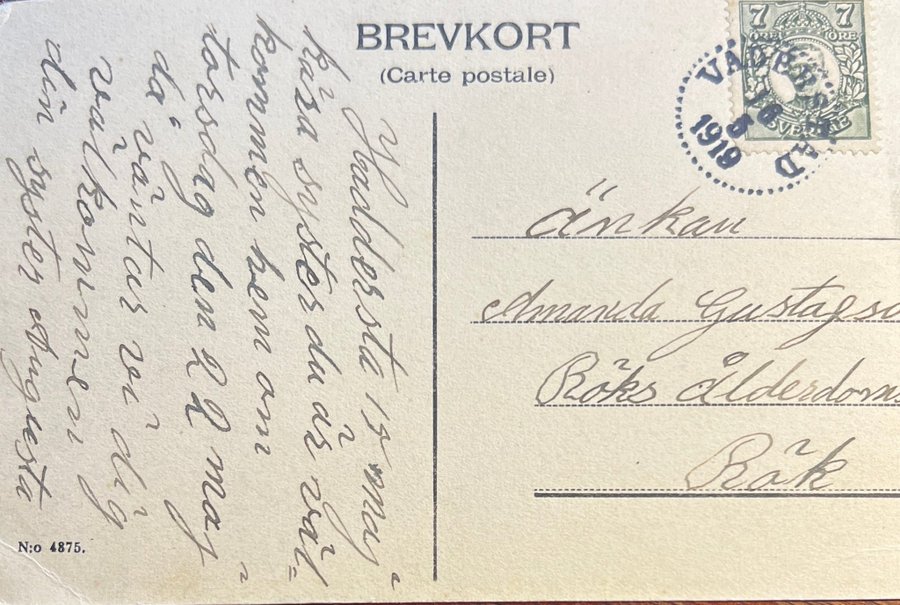 BREVKORT
(Carte postale)
7 7
ÖRE ÖRE
SVERIGE
VADERSTAD
16
5
1919
Haddersta 15 maj
kära syster du är väl=
kommen hem om
torsdag den 22 maj
då väntar vi dig
välkommen
din syster Augusta
Änkan
Amanda Gustafso
Röks Ålderdoms
Rök
N:o 4875.